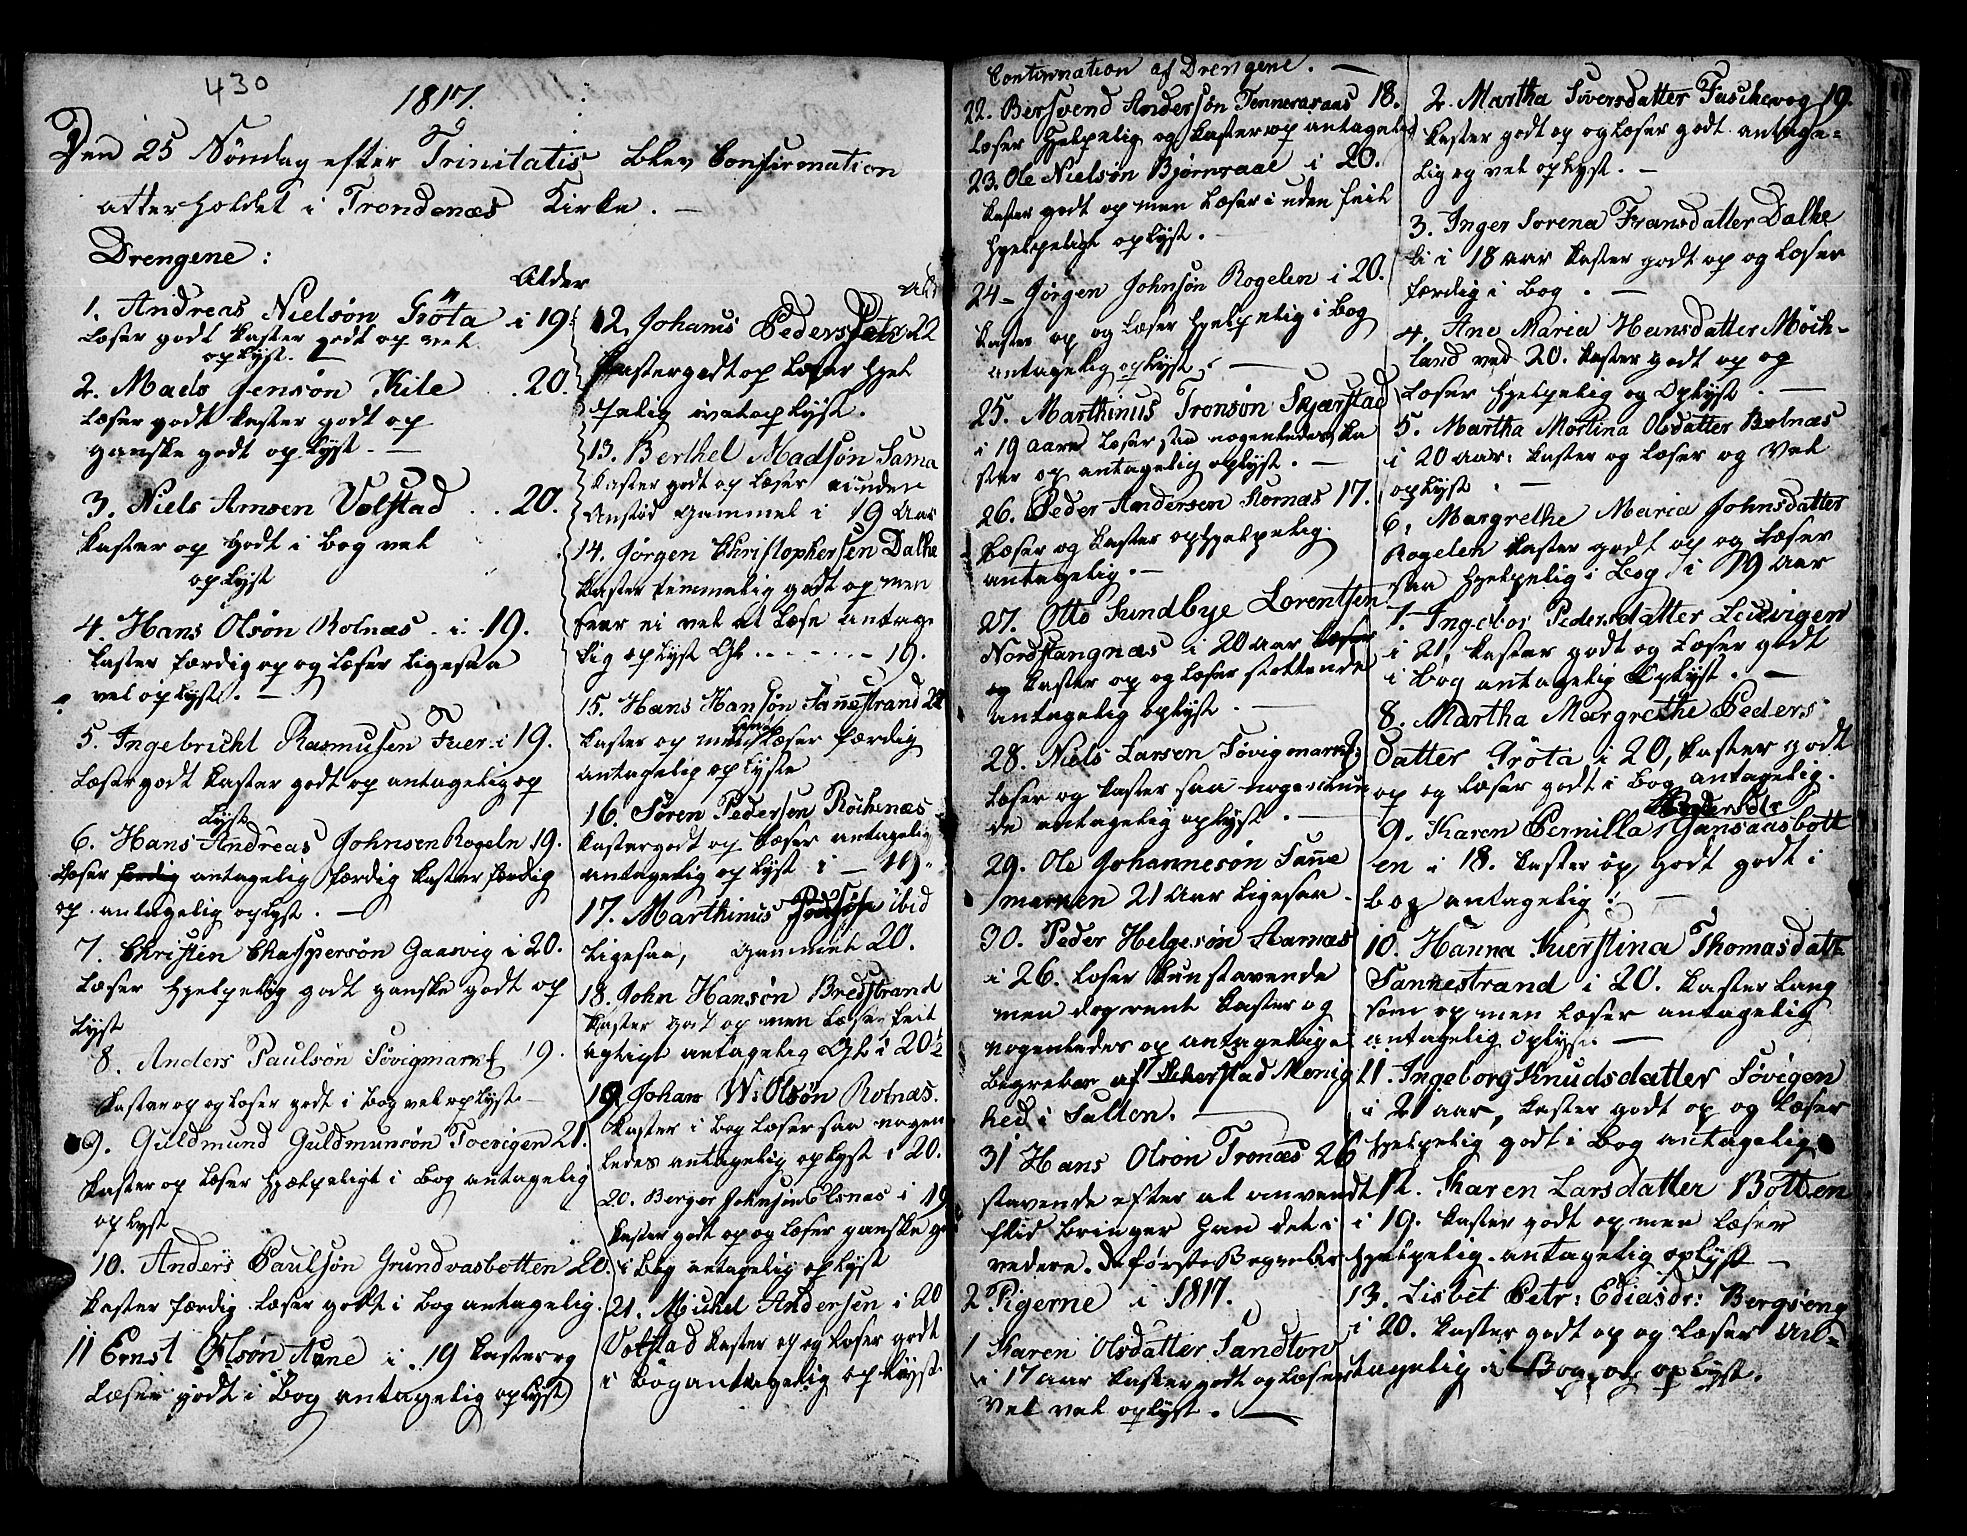 430
1817.
Den 25 Søndag efter Trinitatis blev Confirmation
atter holdet i Trondenæs Kirke. —
Drengene:
Alder
1. Andreas Nielsøn Gröta i 19.
læser godt kaster godt op vel
oplyst. —
2. Mads Jensøn Kile . . 20.
læser godt kaster godt op
ganske godt oplyst. —
3. Niels Amsen Volstad . . 20.
kaster op godt i bog vel
oplyst
4. Hans Olsøn Rolnæs . i . 19.
kaster færdig op og læser ligesaa
vel oplyst. —
5. Ingebricht Rasmusen Fuer i 19.
læser godt kaster godt op antagelig op
lyst
6. Hans Andreas Johnsen Rogeln 19.
læser antagelig færdig kaster færdig
op antagelig oplyst. —
7. Christen Chaspersøn Gaasvig i 20.
læser hjelpelig godt ganske godt op
lyst
8. Anders Paulsøn Søvigmark 19.
kaster op og læser godt i bog vel oplyst. —
9. Guldmund Guldmunsøn Toevigen 21.
kaster op læser hjælpeligt i bog antagelig
oplyst
10. Anders Paulsøn Grundvasbotten 20.
kaster færdig læser godt i bog antagelig.
11 Ernst Olsøn Aune i 19 kaster og
læser godt i bog antagelig oplyst
12. Johans Peders 22
kaster godt op læser hjel
pelig vel oplyst.
13. Berthel Madsøn Sama
kaster godt op læser uden
Anstød gammel i 19 Aar
14. Jørgen Christophersen Dalhe
kaster temmelig godt op men
ei vel at læse antage
lig oplyst Gl. . . . . . 19.
15. Hans Hansøn Sañestrand 22
kaster op men læser færdig
antagelig oplyste
16. Søren Pedersen Röchenæs
kaster godt op læser antagelig
antagelig oplyst i — 19.
17. Marthinus ibid
ligesaa, gammel 20.
18. John Hansøn Bredstrand
kaster godt op men læser feil
agtigt antagelig Gl. i 20½
19. Johan W: Olsøn Rolnæs.
kaster i bog læser saa nogen
ledes antagelig oplyst i 20.
20. Berger Johnsen Elsnes i 19
kaster godt op og læser ganske
i bog antagelig oplyst
21. Mickel Andersen i 20
Volstad kaster op og læser godt
i bog antagelig oplyst.
Continnation af Drengene. —
22. Bersvend Andersøn Tenneraaas 18.
læser hjelpelig og kaster op antagelig
23. Ole Nielsøn Bjørnraae i 20.
kaster godt op men læser i uden feil
hjelpelige oplyst.
24 – Jørgen Johnsøn Rogelen i 20.
kaster op og læser hjelpelig i bog
antagelig oplyst. —
25. Marthinus Tronsøn Skjærstad
i 19 aaren læser saa nogenledes ka
ster op antagelig oplyst. —
26. Peder Andersen Kornæs 17.
læser og kaster op hjelpelig.
antagelig. —
27. Otto Sundbye Lorentsen
Nordstangnæs i 20 aar
og kaster op og læser stottende
antagelig oplyst. —
28. Niels Larsen Søvigmark
læser og kaster saa nogenlun
de antagelig oplyst. —
29. Ole Johannesøn Sañe
marnen 21 aar ligesaa —
30. Peder Helgesøn Aarnæs
i 26. læser kun stavende
men dog rent kaster og
nogenledes op antagelige
begreber af Skierstad Menig
hed i Salten. —
31 Hans Olsøn Tronæs 26
stavende efter al anvendt
flid bringer han det i
videre. De første Begreber
2 Pigerne i 1817.
1 Karen Olsdatter Sandtorv
i 17 aar kaster godt og læser
vel vel oplyst. —
2. Martha Siversdatter Faschevog 19.
kaster godt op og læser godt antage=
lig og vel oplyst. —
3. Inger Sorena Fransdatter Dalhe
li i 18 aar kaster godt op og læser
færdig i bog. —
4. Ane Maria Hansdatter Möch-
land ved 20. kaster godt op og
læser hjelpelig og oplyst. —
5. Martha Mortina Olsdatter Bolnæs
i 20 aar: kaster og læser og vel
oplyst. —
6. Margrethe Maria Johnsdatter
Rogelen kaster godt op og læser
saa hjelpelig i bog i 19 aar
7. Ingebor Pedersdatter Leuvigen
i 21, kaster godt og læser godt
i bog antagelig oplyst. —
8. Martha Margrethe Peders
datter Gröta i 20, kaster godt
op og læser godt i bog antagelig.
9. Karen Pernilla Gansaasbott
en i 18. kaster op godt godt i
bog antagelig. —
10. Hanna Kierstina Thomasdatt
Sannestrand i 20. kaster lang
som op men læser antagelig
antagelig oplyst. —
11. Ingeborg Knudsdatter Søvigen
i 21 aar, kaster godt op og læser
hjelpelig godt i bog antagelig
12. Karen Larsdatter Botten
i 19. kaster godt op men læser
hjelpelig. antagelig oplyst —
13. Lisbet Petr: Ediasdr: Bergseng
i 20. kaster godt op og læser an=
tagelig i Bog og oplyst.